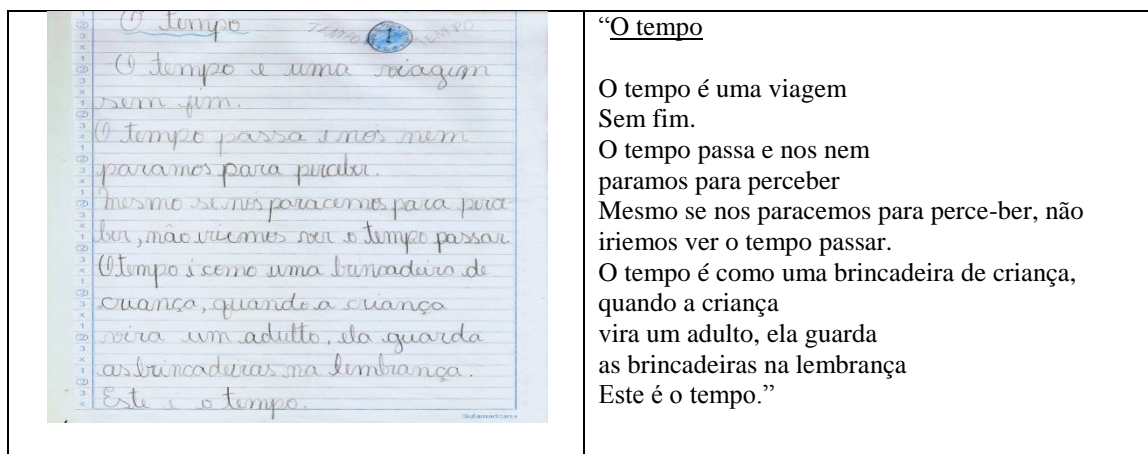 O tempo
TEMPO 1 TEMPO
O tempo e uma viagem
sem fim.
O tempo passa e nos nem
paramos para perceber.
Mesmo se nos paracemos para perce-
ber, não iriemos ver o tempo passar.
O tempo é como uma brincadeira de
criança, quando a criança
vira um adulto, ela guarda
as brincadeiras na lembrança.
Este é o tempo.
“O tempo
O tempo é uma viagem
Sem fim.
O tempo passa e nos nem
paramos para perceber
Mesmo se nos paracemos para perce-ber, não
iriemos ver o tempo passar.
O tempo é como uma brincadeira de criança,
quando a criança
vira um adulto, ela guarda
as brincadeiras na lembrança
Este é o tempo.”